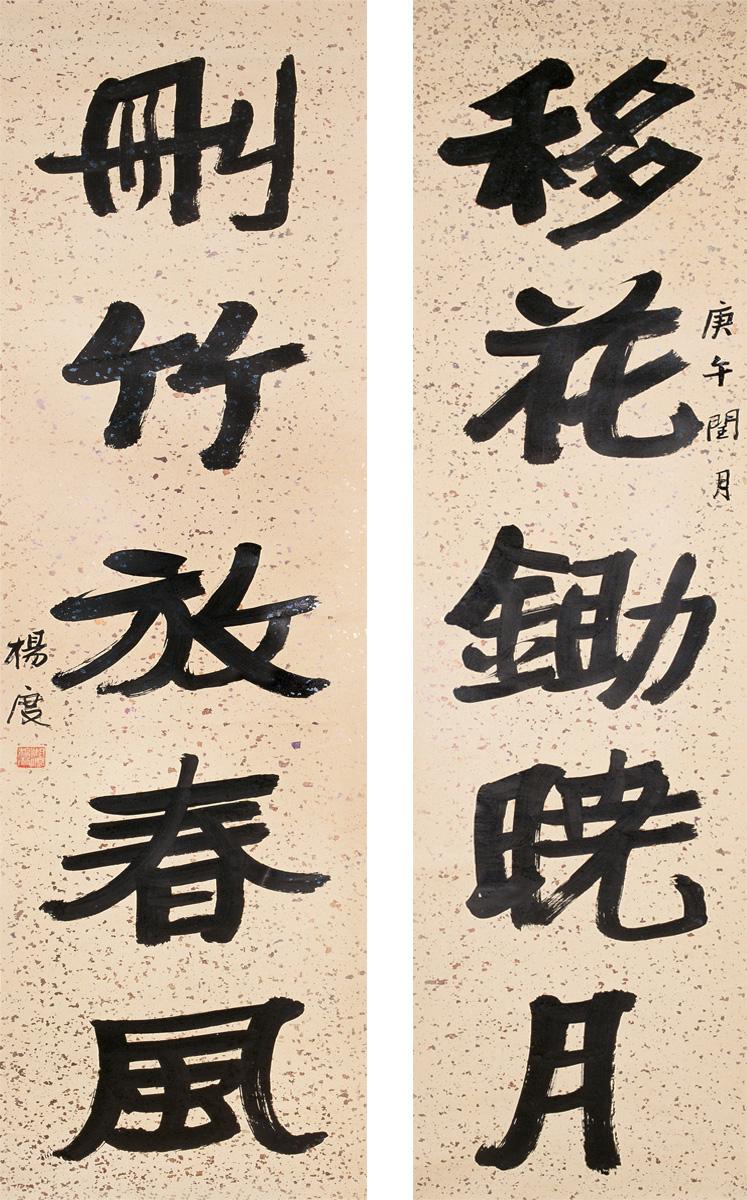 移花鋤曉月
庚午閏月
刪竹放春風
楊度